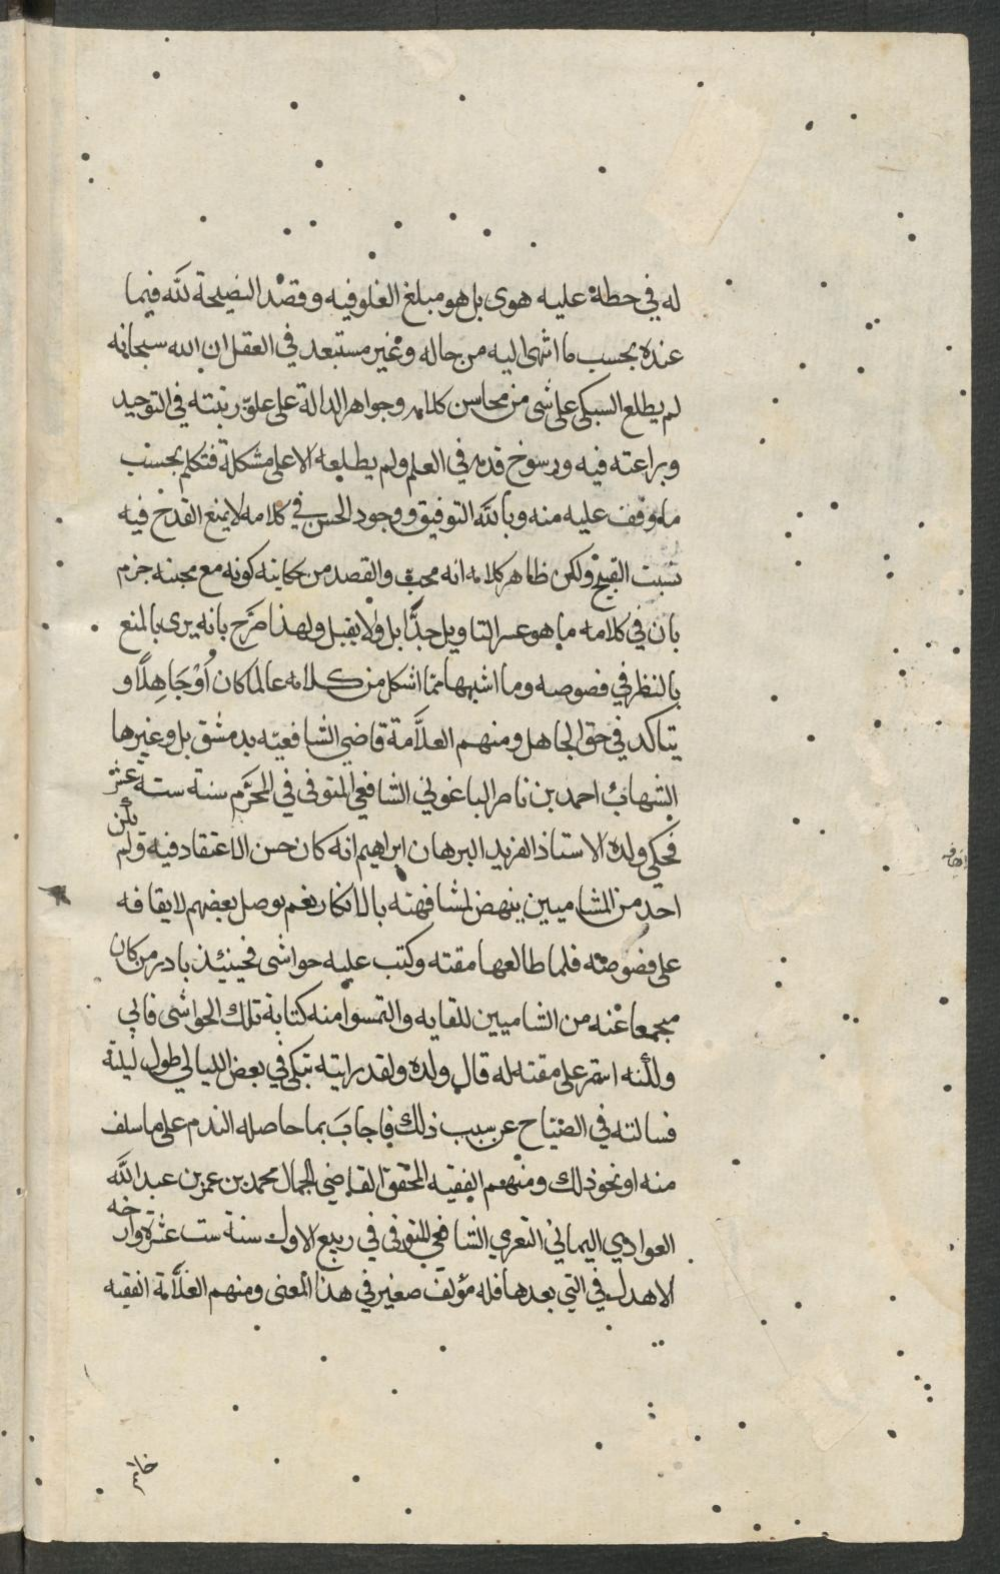 له في حطه عليه هوى بل هو مبلغ الغلو فيه وقصد النصيحة لله فيما
عنده بحسب ما انتهى اليه من حاله وغير مستبعد في العقل ان الله سبحانه
لم يطلع السبكي على شي من محاسن كلامه وجواهر الدالة على علو رتبته في التوحيد
وبراعته فيه ورسوخ قدمه في العلم ولم يطلعه الا على مشكلة فتكلم بحسب
ما وقف عليه منه وبالله التوفيق ووجود الحسن في كلامه لا يمنع القدح فيه
بسبب القبيح ولكن ظاهر كلامه انه محب والقصد من حكايته كونه مع محبته جزم
بان في كلامه ما هو عسر التاويل جدًّا بل ولا يقبل ولهذا صَرَّح بانه يرى بالمنع
بالنظر في فصوصه وما اشبهها مما اشكل من كلامه عالما كان أوْ جَاهِلاً و
يتاكد في حق الجاهل ومنهم العلاَّمة قاضي الشافعيه بدمشق بل وغيرها
الشهابُ احمد بن ناصر الباعوني الشافعي المتوفى في المحرَّم سنة ستة عشر
فحكى ولده الاستاذ الفريد البرهان ابراهيم انه كان حسن الاعتقاد فيه ولم يكن
احد من الشاميين ينهض لمشافهته بالانكار نعم توصل بعضهم لايقافه
على فصوصه فلما طالعها مقته وكتب عليه حواشى فحينئذ بادر من كان
مجمعا عنه من الشاميين للقايه والتمسوا منه كتابة تلك الحواشى فابى
ولكنه استمر على مقته له قال ولده ولقد رايته يبكي في بعض الليالي طول ليلته
فسالته في الصَّباح عن سبب ذلك فاجابَ بما حاصله الندم على ما سلف
منه او نحو ذلك ومنهم الفقيه المحقق القاضي الجمال محمد بن عمر بن عبد الله
العوادي اليماني التعزي الشافعي المتوفى في ربيع الاول سنة ست عشرة وارخه
الاهدل في التي بعدها فله مؤلف صغير في هذا المعنى ومنهم العلاَّمة الفقيه